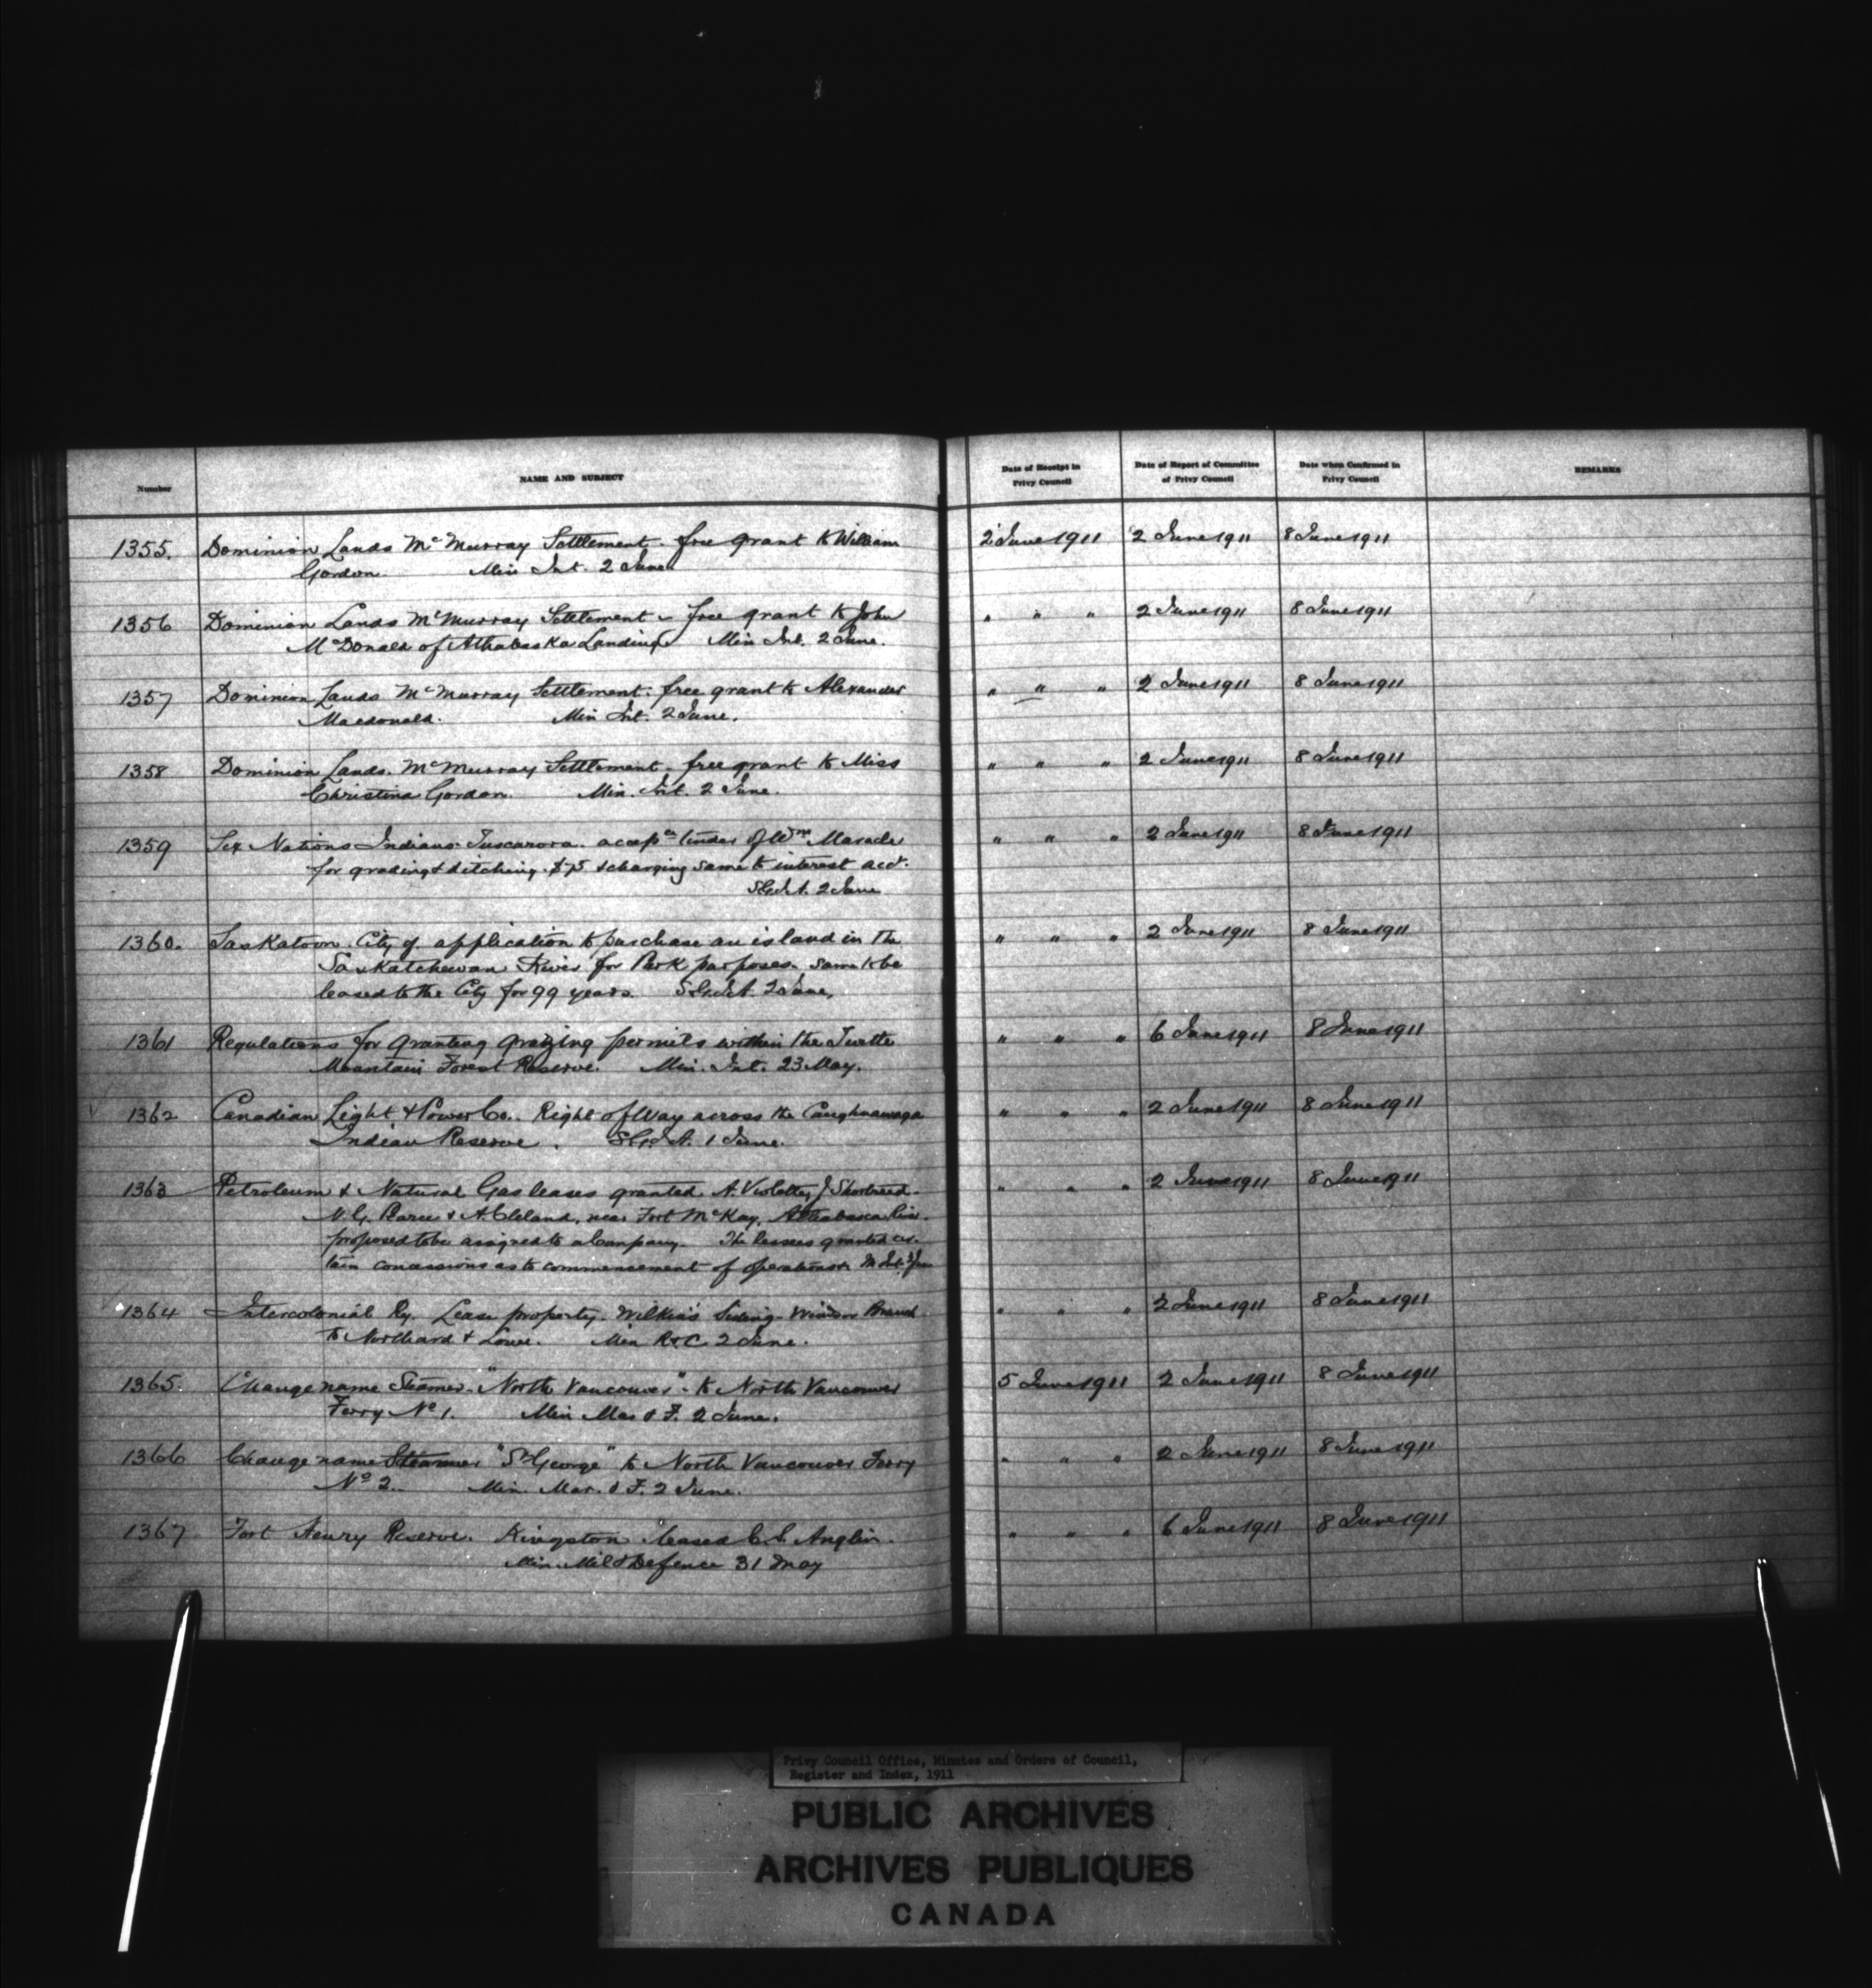 Number
NAME AND SUBJECT
Date of Receipt in Privy Council
Date of Report of Committee of Privy Council
Date when Confirmed in Privy Council
REMARKS
1355. Dominion Lands McMurray Settlement - free grant to William 2 June 1911 2 June 1911 8 June 1911
Gordon. Min Int. 2 June
1356 Dominion Lands McMurray Settlement - free grant to John " " " 2 June 1911 8 June 1911
McDonald of Athabaska Landing Min Int. 2 June.
1357 Dominion Lands McMurray Settlement: free grant to Alexander " " " 2 June 1911 8 June 1911
Macdonald. Min Int. 2 June.
1358 Dominion Lands. McMurray Settlement - free grant to Miss " " " 2 June 1911 8 June 1911
Christina Gordon. Min. Int. 2 June.
1359 Six Nations Indians. Tuscarora. accepce tender of Wm Maracle " " " 2 June 1911 8 June 1911
for grading & ditching. $75 & charging same to interest acct.
S.G.I.A. 2 June
1360. Saskatoon. City of. application to purchase an island in the " " " 2 June 1911 8 June 1911
Saskatchewan River for Park purposes. Same to be
leased to the City for 99 years. S.G.I.A. 2 June.
1361 Regulations for granting grazing permits within the Turtle " " " 6 June 1911 8 June 1911
Mountain Forest Reserve. Min. Int. 23 May.
1362 Canadian Light & Power Co. Right of Way across the Caughnawaga " " " 2 June 1911 8 June 1911
Indian Reserve. S.G.I.A. 1 June.
1363 Petroleum & Natural Gas leases granted A. Violette, J. Shortreed. " " " 2 June 1911 8 June 1911
& A. Cleland, near Fort McKay, Athabasca River.
proposed to be assigned to a Company. The lessees granted cer-
tain concessions as to commencement of operations. M. Int.
1364 Intercolonial Ry. Lease property. Wilkins Siding. Windsor Branch " " " 2 June 1911 8 June 1911
to & Lowe. Min R&C 2 June.
1365. Change name Steamer. "North Vancouver" - to North Vancouver 5 June 1911 2 June 1911 8 June 1911
Ferry No 1. Min Mar & F. 2 June.
1366 Change name Steamer "St George" to North Vancouver Ferry " " " 2 June 1911 8 June 1911
No 2. Min. Mar. & F. 2 June.
1367 Fort Henry Reserve. Kingston leased Anglin. " " " 6 June 1911 8 June 1911
Min. Mil & Defence 31 May
Privy Council Office, Minutes and Orders of Council,
Register and Index, 1911
PUBLIC ARCHIVES
ARCHIVES PUBLIQUES
CANADA